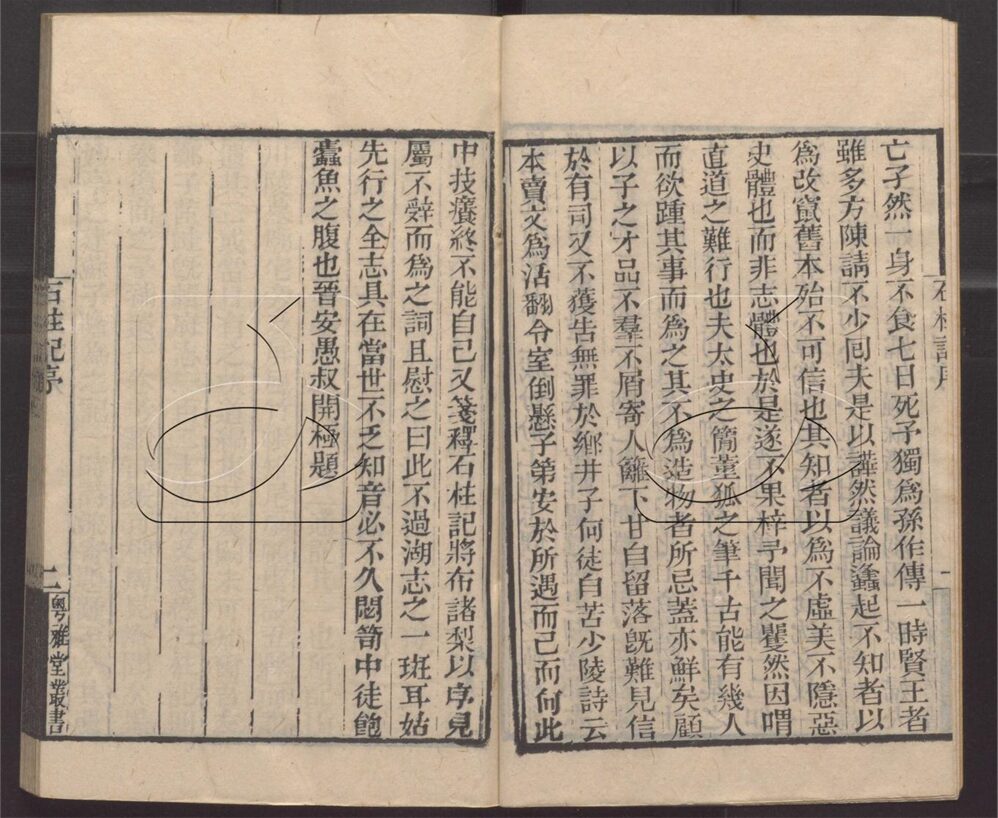 亡孑然一身不食七日死予獨爲孫作傳一時賢王者
雖多方陳請不少囘夫是以譁然議論蠭起不知者以
爲改竄舊本殆不可信也其知者以爲不虛美不隱惡
史體也而非志體也於是遂不果梓予聞之矍然因喟
直道之難行也夫太史之簡董狐之筆千古能有幾人
而欲踵其事而爲之其不爲造物者所忌蓋亦鮮矣顧
以子之才品不羣不屑寄人籬下甘自留落旣難見信
於有司又不獲告無罪於鄉井子何徒自苦少陵詩云
本賣文爲活翻令室倒懸子第安於所遇而已而何此
石柱記序
一
中技癢終不能自已又箋釋石柱記將布諸梨以序見
屬不辤而爲之詞且慰之曰此不過湖志之一班耳姑
先行之全志具在當世不乏知音必不久閟笥中徒飽
蠹魚之腹也晉安愚叔開極題
石柱記序
二
粵雅堂叢書